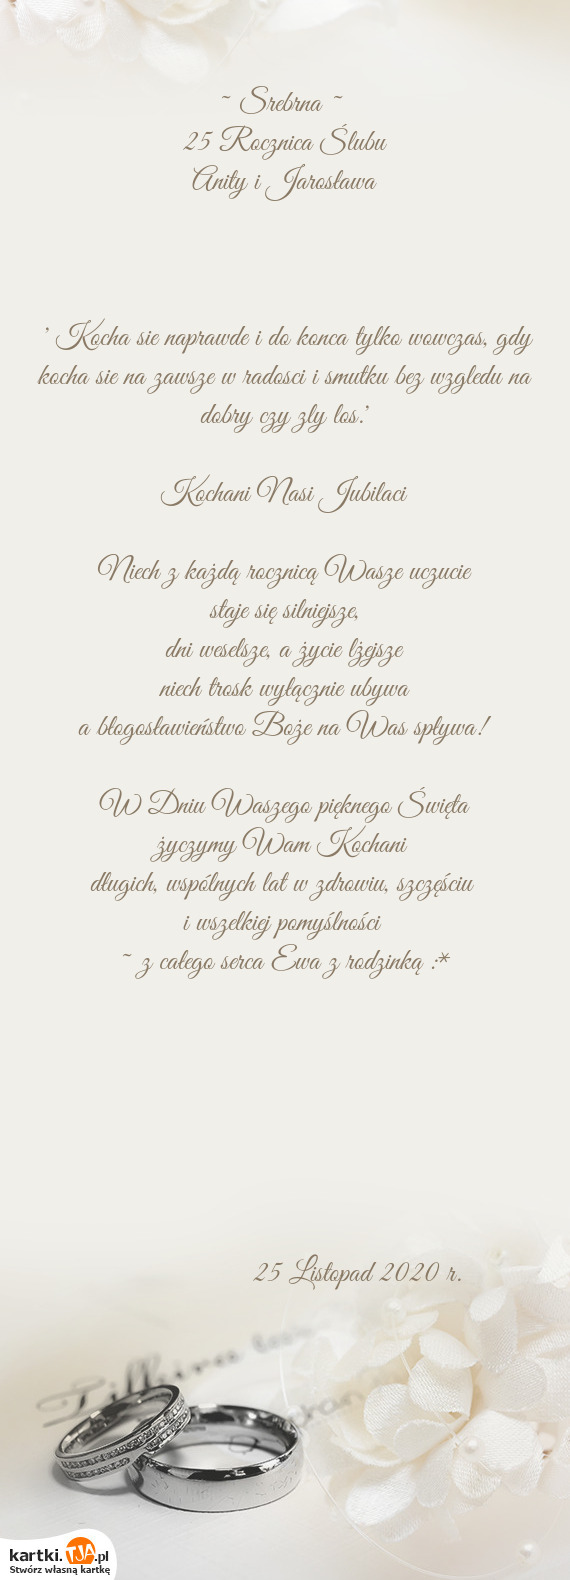 ~ Srebrna ~
25 Rocznica Ślubu
Anity i Jarosława
' Kocha sie naprawde i do konca tylko wowczas, gdy
kocha sie na zawsze w radosci i smutku bez wzgledu na
dobry czy zly los.'
Kochani Nasi Jubilaci
Niech z każdą rocznicą Wasze uczucie
staje się silniejsze,
dni weselsze, a życie lżejsze
niech trosk wyłącznie ubywa
a błogosławieństwo Boże na Was spływa!
W Dniu Waszego pięknego Święta
życzymy Wam Kochani
długich, wspólnych lat w zdrowiu, szczęściu
i wszelkiej pomyślności
~ z całego serca Ewa z rodzinką :*
25 Listopad 2020 r.
kartki.TJA.pl
Stwórz własną kartkę